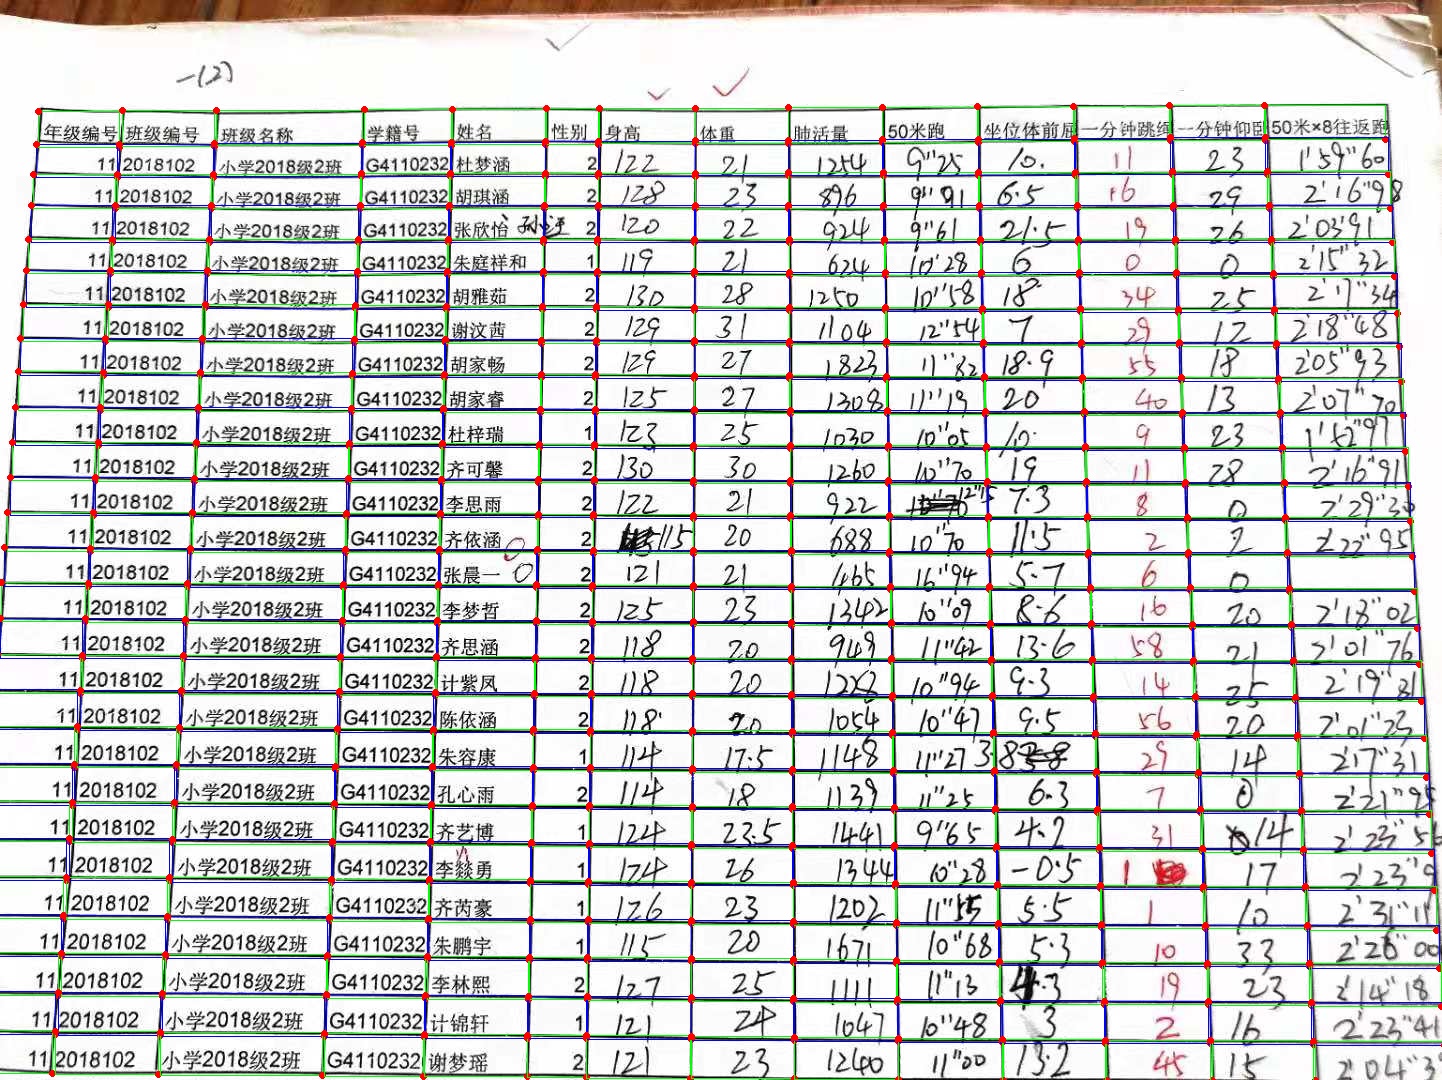 一(2)
年级编号 班级编号 班级名称 学籍号 姓名 性别 身高 体重 肺活量 50米跑 坐位体前屈 一分钟跳绳 一分钟仰卧 50米×8往返跑
11 2018102 小学2018级2班 G4110232 杜梦涵 2 122 21 1254 9"25 10. 11 23 1'59"60
11 2018102 小学2018级2班 G4110232 胡琪涵 2 128 23 896 9"91 6.5 16 29 2'16"98
11 2018102 小学2018级2班 G4110232 张欣怡 2 120 22 924 9"61 21.5 19 26 2'03"91
11 2018102 小学2018级2班 G4110232 朱庭祥和 1 119 21 624 10"28 6 0 0 2'15"32
11 2018102 小学2018级2班 G4110232 胡雅茹 2 130 28 1250 10"58 18 34 25 2'17"34
11 2018102 小学2018级2班 G4110232 谢汶茜 2 129 31 1104 12"54 7 29 12 2'18"48
11 2018102 小学2018级2班 G4110232 胡家畅 2 129 27 1823 11"82 18.9 55 18 2'05"93
11 2018102 小学2018级2班 G4110232 胡家睿 2 125 27 1308 11"19 20 40 13 2'07"70
11 2018102 小学2018级2班 G4110232 杜梓瑞 1 123 25 1030 10"05 10. 9 23 1'52"97
11 2018102 小学2018级2班 G4110232 齐可馨 2 130 30 1260 10"70 19 11 28 2'16"91
11 2018102 小学2018级2班 G4110232 李思雨 2 122 21 922 12"15 7.3 8 0 2'29"30
11 2018102 小学2018级2班 G4110232 齐依涵 2 115 20 688 10"70 11.5 2 2 2'22"95
11 2018102 小学2018级2班 G4110232 张晨一 2 121 21 465 16"94 5.7 6 0
11 2018102 小学2018级2班 G4110232 李梦哲 2 125 23 1342 10"09 8.6 16 20 2'18"02
11 2018102 小学2018级2班 G4110232 齐思涵 2 118 20 949 11"42 13.6 58 21 2'01"76
11 2018102 小学2018级2班 G4110232 计紫凤 2 118 20 10"94 9.3 14 25 2'19"81
11 2018102 小学2018级2班 G4110232 陈依涵 2 118 20 1054 10"47 9.5 56 20 2'01"23
11 2018102 小学2018级2班 G4110232 朱容康 1 114 17.5 1148 11"27 29 14 2'17"31
11 2018102 小学2018级2班 G4110232 孔心雨 2 114 18 1139 11"25 6.3 7 0 2'21"95
11 2018102 小学2018级2班 G4110232 齐艺博 1 124 23.5 1441 9"65 4.2 31 14 2'23"56
11 2018102 小学2018级2班 G4110232 李燚勇 1 124 26 1344 10"28 -0.5 1 17 2'23"9
11 2018102 小学2018级2班 G4110232 齐芮豪 1 126 23 1202 11"55 5.5 1 10 2'31"11
11 2018102 小学2018级2班 G4110232 朱鹏宇 1 115 20 1671 10"68 5.3 10 33 2'26"00
11 2018102 小学2018级2班 G4110232 李林熙 2 127 25 1111 11"13 4.3 19 23 2'14"18
11 2018102 小学2018级2班 G4110232 计锦轩 1 121 24 1047 10"48 3 2 16 2'23"41
11 2018102 小学2018级2班 G4110232 谢梦瑶 2 121 23 1240 11"00 13.2 45 15 2'04"3